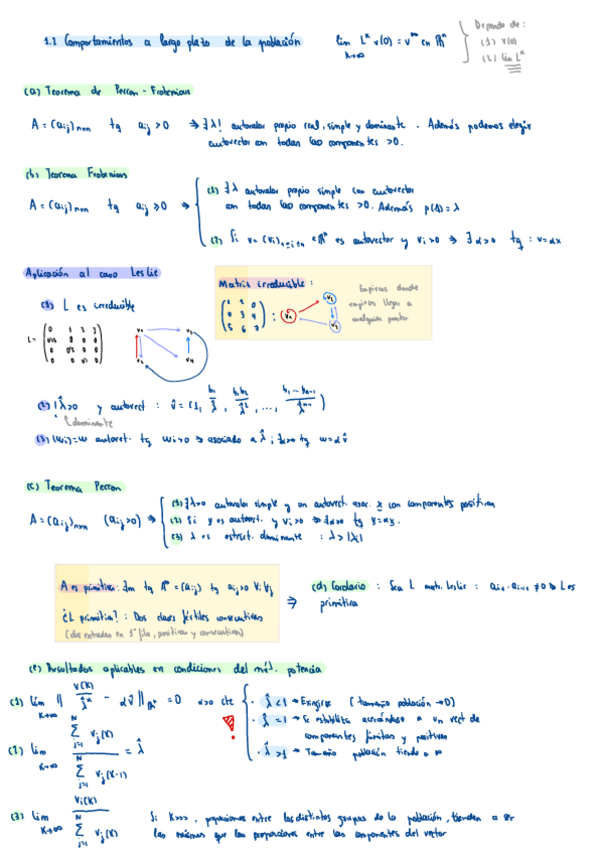 1.2 Comportamientos a largo plazo de la población lim L^k v(0) = v^∞ en ℝ^n
k→∞
Depende de:
(1) v(0)
(2) lim L^k
(a) Teorema de Perron-Frobenius
A = (aij)nxn tq aij > 0 ⇒ ∃ λ! autovalor propio real, simple y dominante. Además podemos elegir
autovector con todas las componentes > 0.
(b) Teorema Frobenius
A = (aij)nxn tq aij ≥ 0 ⇒
(1) ∃ λ autovalor propio simple con autovector
con todas las componentes > 0. Además ρ(A) = λ
(2) Si v = (vi)1≤i≤n ∈ ℝ^n es autovector y vi > 0 ⇒ ∃ α > 0 tq : v = αx
Aplicación al caso Leslie
(1) L es irreducible
L =
Matriz irreducible :
1 2 0
0 3 4
5 6 7
Empieces donde
empieces llegas a
cualquier punto
(2) ∃ λ̂ > 0 y autovect : v̂ = (1, b1/λ̂, b1b2/λ̂², ..., b1...bn-1/λ̂^n-1)
dominante
(3) (wi) = w autovect. tq wi > 0 ⇒ asociado a λ̂ ; ∃ α > 0 tq w = α v̂
(c) Teorema Perron
A = (aij)nxn (aij > 0) ⇒
(1) ∃ λ > 0 autovalor simple y un autovect. asoc. x con componentes positivas
(2) Si v es autovect. y vi > 0 ⇒ ∃ α > 0 tq v = αx.
(3) λ es estrict. dominante : λ > |λi|
A es primitiva : ∃ m tq A^m = (aij) tq aij > 0 ∀i ∀j
¿L primitiva? : Dos clases fértiles consecutivas
(dos entradas en 1ª fila, positivas y consecutivas)
⇒
(d) Corolario : Sea L matr. Leslie : ai · ai+1 ≠ 0 ⇒ L es
primitiva
(e) Resultados aplicables en condiciones del mét. potencia
(1) lim k→∞ || v(k)/λ̂^k - α v̂ ||ℝ^n = 0 α > 0 cte
· λ̂ < 1 → Extingirse (tamaño población → 0)
· λ̂ = 1 → Se estabiliza acercándose a un vect de
componentes finitas y positivas
· λ̂ > 1 → Tamaño población tiende a ∞
(2) lim k→∞ Σ j=1 N vj(k) / Σ j=1 N vj(k-1) = λ̂
(3) lim k→∞ vi(k) / Σ j=1 N vj(k)
Si k>>>, proporciones entre los distintos grupos de la población, tienden a ser
las mismas que las proporciones entre las componentes del vector